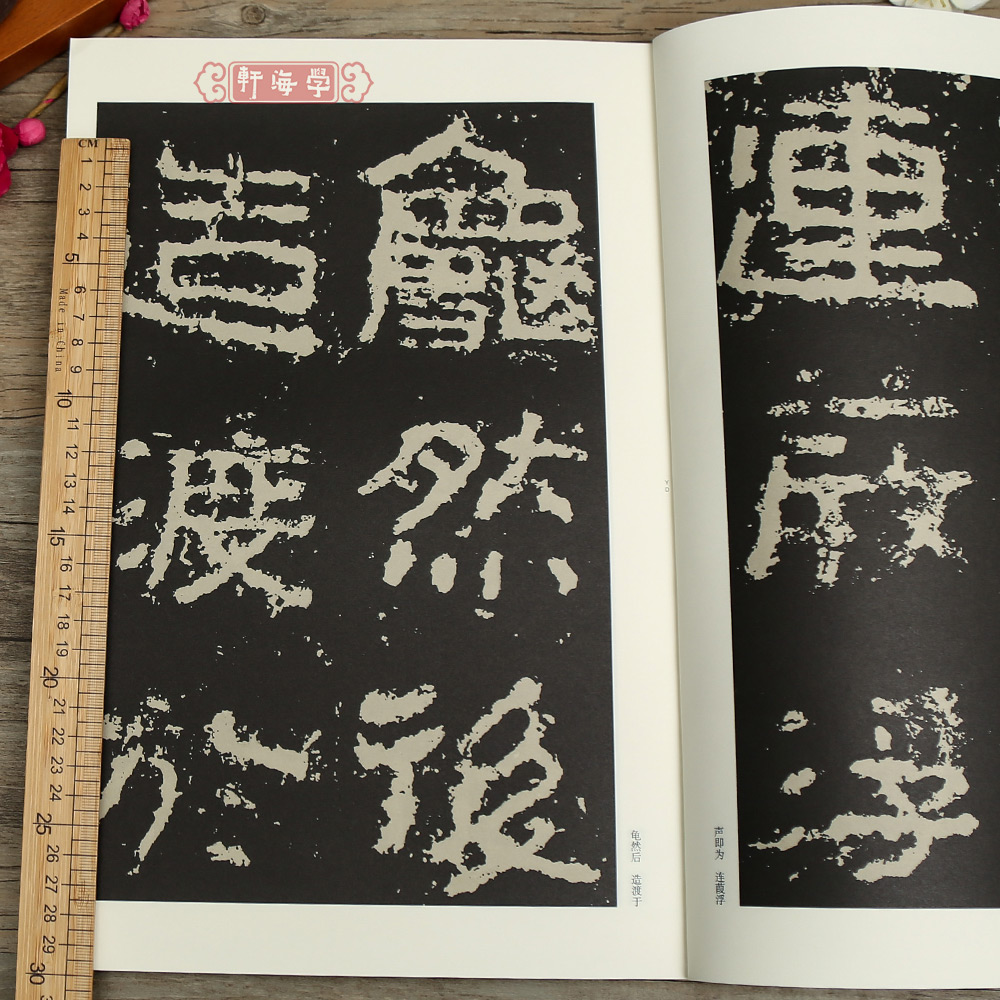 學海軒
龜然後
渡於
龟然后 造渡于
連葭浮
声即为 连葭浮
YD
CM
1 2 3 4 5 6 7 8 9 10 11 12 13 14 15 16 17 18 19 20 21 22 23 24 25 26 27 28 29 30
Made in China